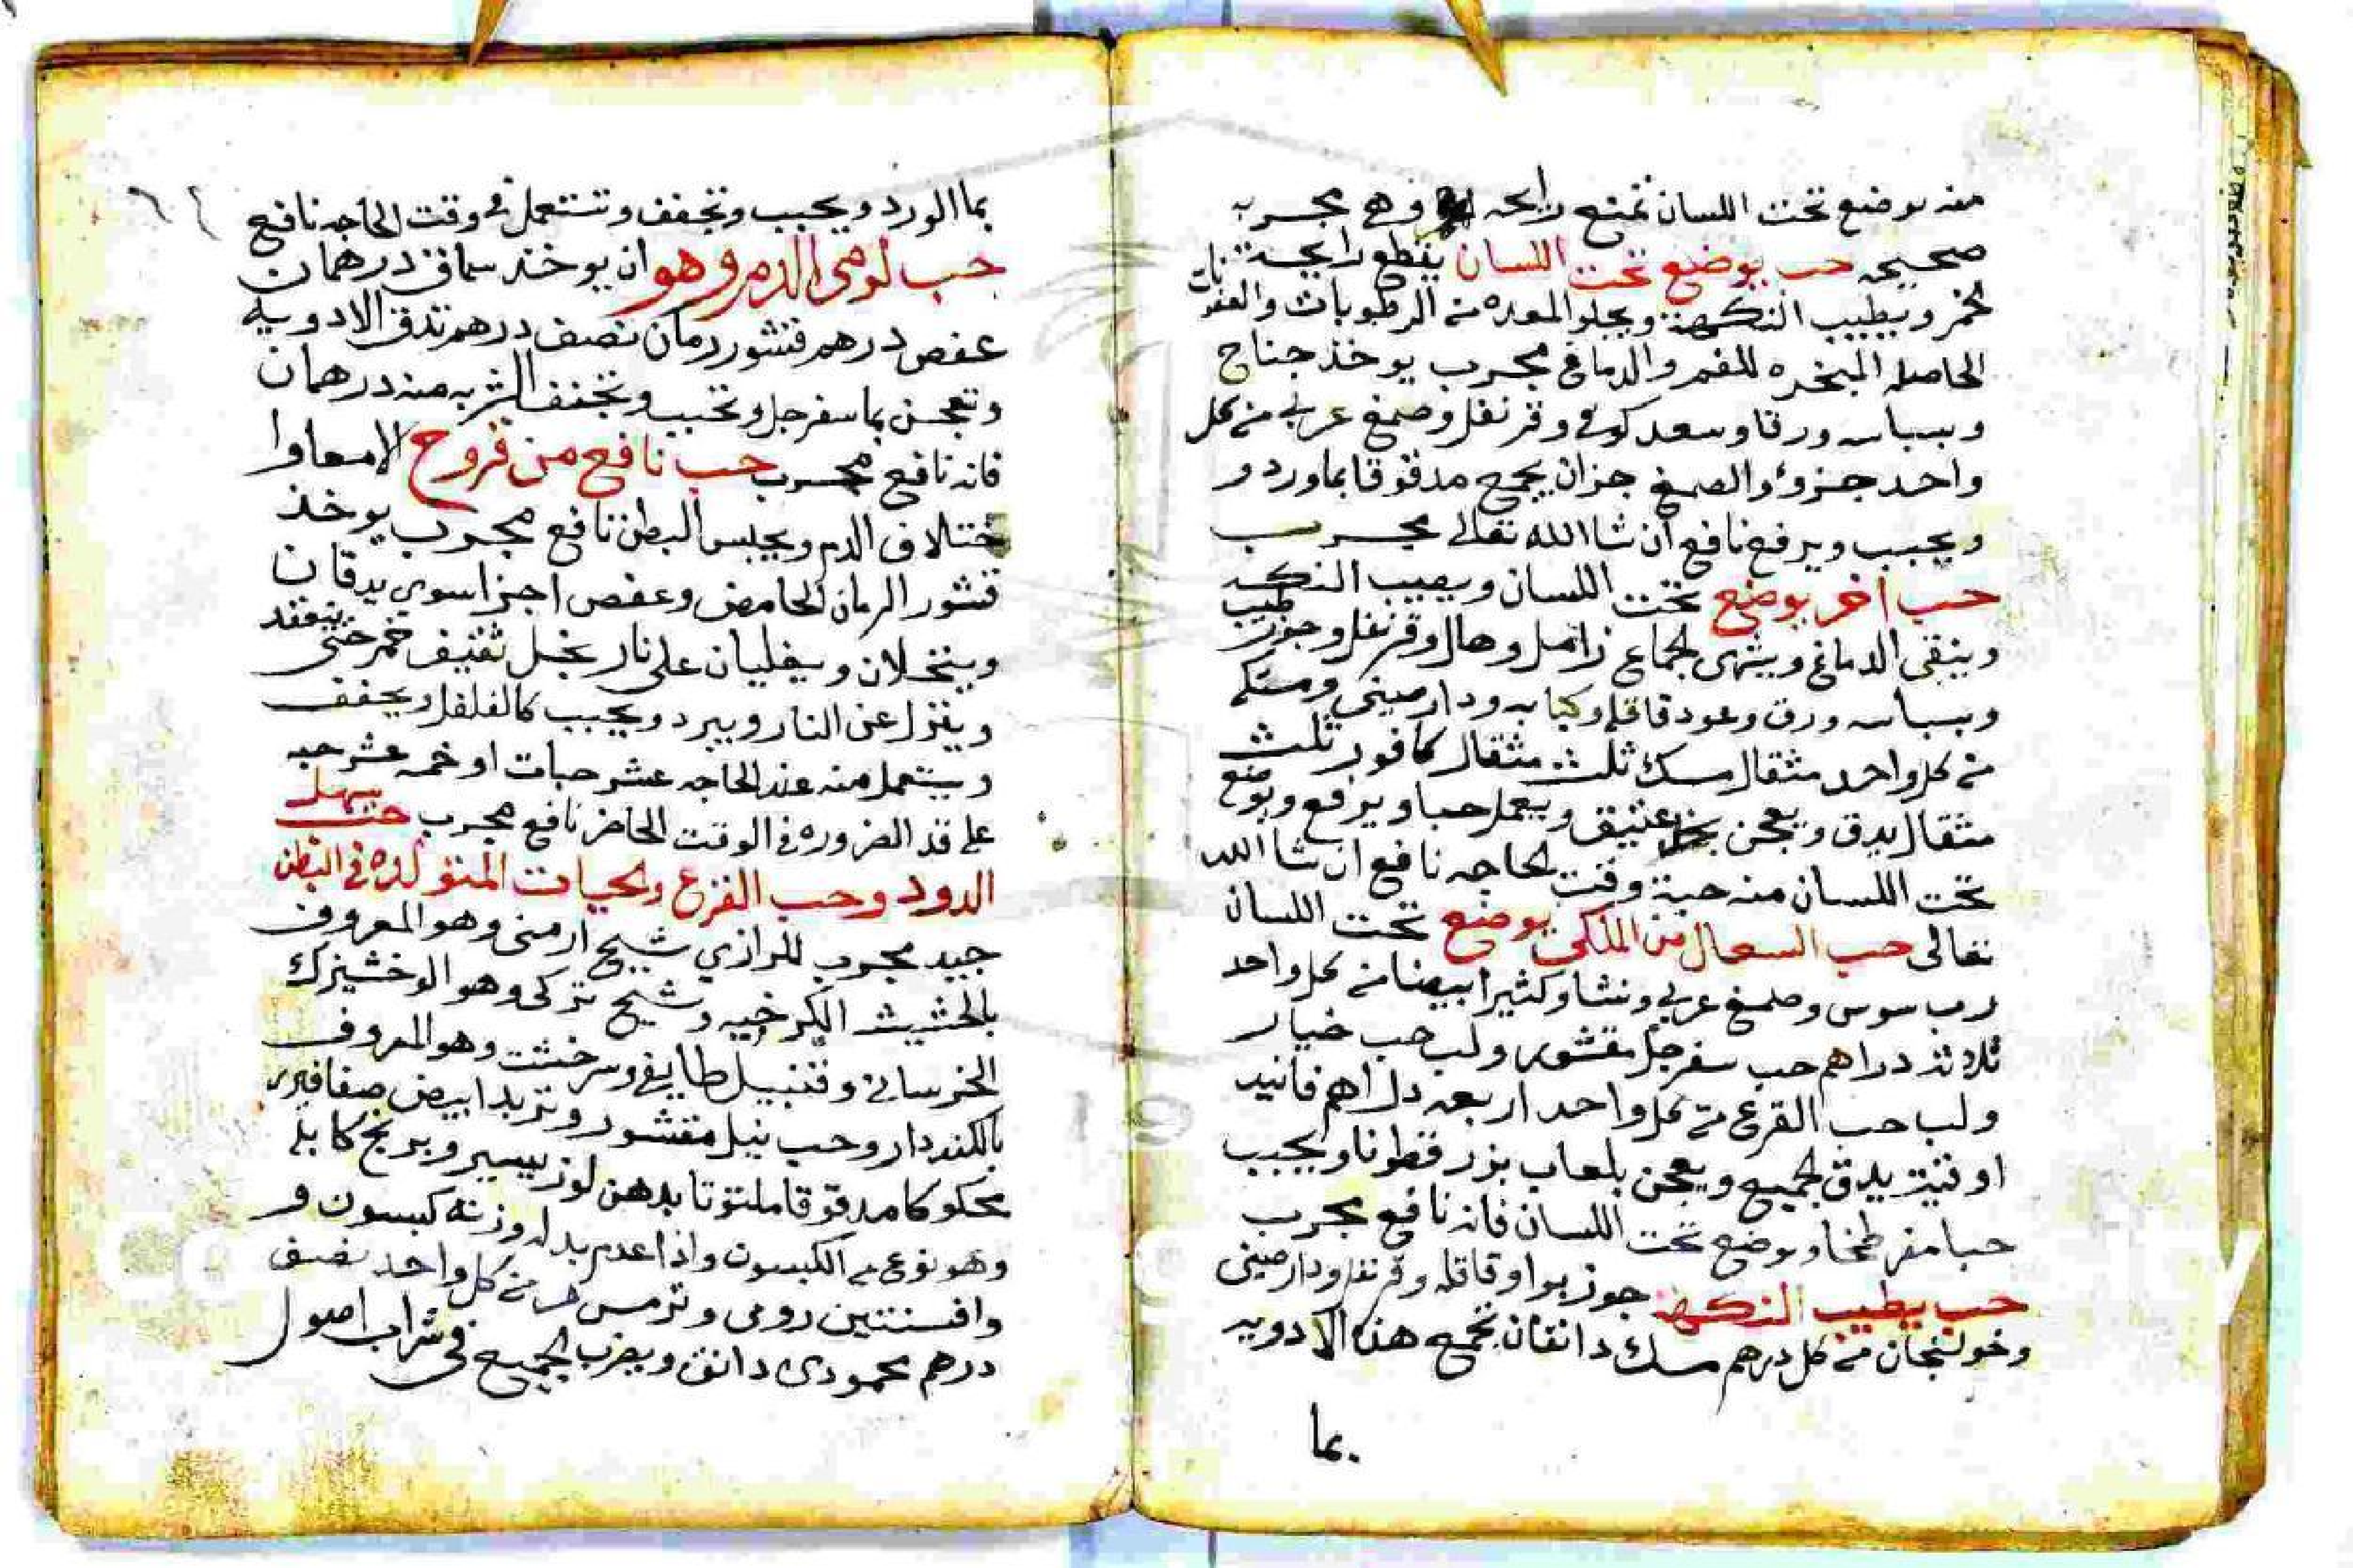 منه يوضع تحت اللسان تمنع رايحه وهي مجربه
صحيحه حب يوضع تحت اللسان يقطع رايحة
لخمر ويطيب النكهة ويجلو المعده من الرطوبات والعفونات
الحاصله المبخره للفم والدماغ مجرب يوخذ جناح
وبسباسه ورقا وسعد كوفي وقرنفل وصمغ عربي من كل
واحد جزو والصمغ جزان يجمع مدقوقا بماورد و
ويحبب ويرفع نافع ان شا الله تعالى مجرب
حب اخر يوضع تحت اللسان ويطيب النكهه
وينقي الدماغ ويشهي لجماع زامل وهال وقرنفل وجوز طيب
وبسباسه ورق وعود قاقله وكبابه ودارصيني ومستكى
من كل واحد مثقال مسك ثلث مثقال كافور ثلث
مثقال يدق ويعجن بخل عتيق ويعمل حبا ويرفع ويوضع
تحت اللسان منه حبة وقت لحاجه نافع ان شا الله
تعالى حب السعال من الملكي يوضع تحت اللسان
رب سوس وصمغ عربي ونشا وكثيرا بيضا من كل واحد
ثلاثة دراهم حب سفرجل مقشور ولب حب خيار
ولب حب القرع من كل واحد اربعه دراهم فانيد
اوقية يدق لجميع ويعجن بلعاب بزر قطونا ويحبب
حبا مفرطحا ويوضع تحت اللسان فانه نافع مجرب
حب يطيب النكهة جوز بوا وقاقله وقرنفل ودارصيني
وخولنجان من كل درهم مسك دانقان تجمع هذه الادويه
بما
بما الورد ويحبب وتجفف وتستعمل في وقت الحاجه نافع
حب لومي الدم وهو ان يوخذ سماق درهمان
عفص درهم قشور رمان نصف درهم تدق الادويه
وتعجن بما سفرجل وتحبب وتجفف الشربه منه درهمان
فانه نافع مجرب حب نافع من قروح الامعا وا
ختلاف الدم ويحبس البطن نافع مجرب يوخذ
قشور الرمان الحامض وعفص اجزا سوي يدقان
وينخلان ويغليان على نار بخل ثقيف خمر حتى ينعقد
وينزل عن النار ويبرد ويحبب كالفلفل ويجفف
ويستعمل منه عند الحاجه عشر حبات او خمسه عشر حبه
على قد الضروره في الوقت الحاضر نافع مجرب حب يسهل
الدود وحب القرع والحيات المتولده في البطن
جيد مجرب للرازي شيح ارمني وهو المعروف
بالحشيش الكرخيه وشيح تركي وهو الوخشيزك
الخرساني وقنبيل طايفي وسرخشت وهو المعروف
بالكندار وحب نيل مقشور وتربد ابيض
محكوكا مدقوقا ملتوتا بدهن لوز يسير وبرنج كابلي
وهو نوع من الكبسون واذا عدم بدله وزنه كبسون و
وافسنتين رومي وترمس مر من كل واحد نصف
درهم محمودي دانق ويضرب لجميع في شراب اصول